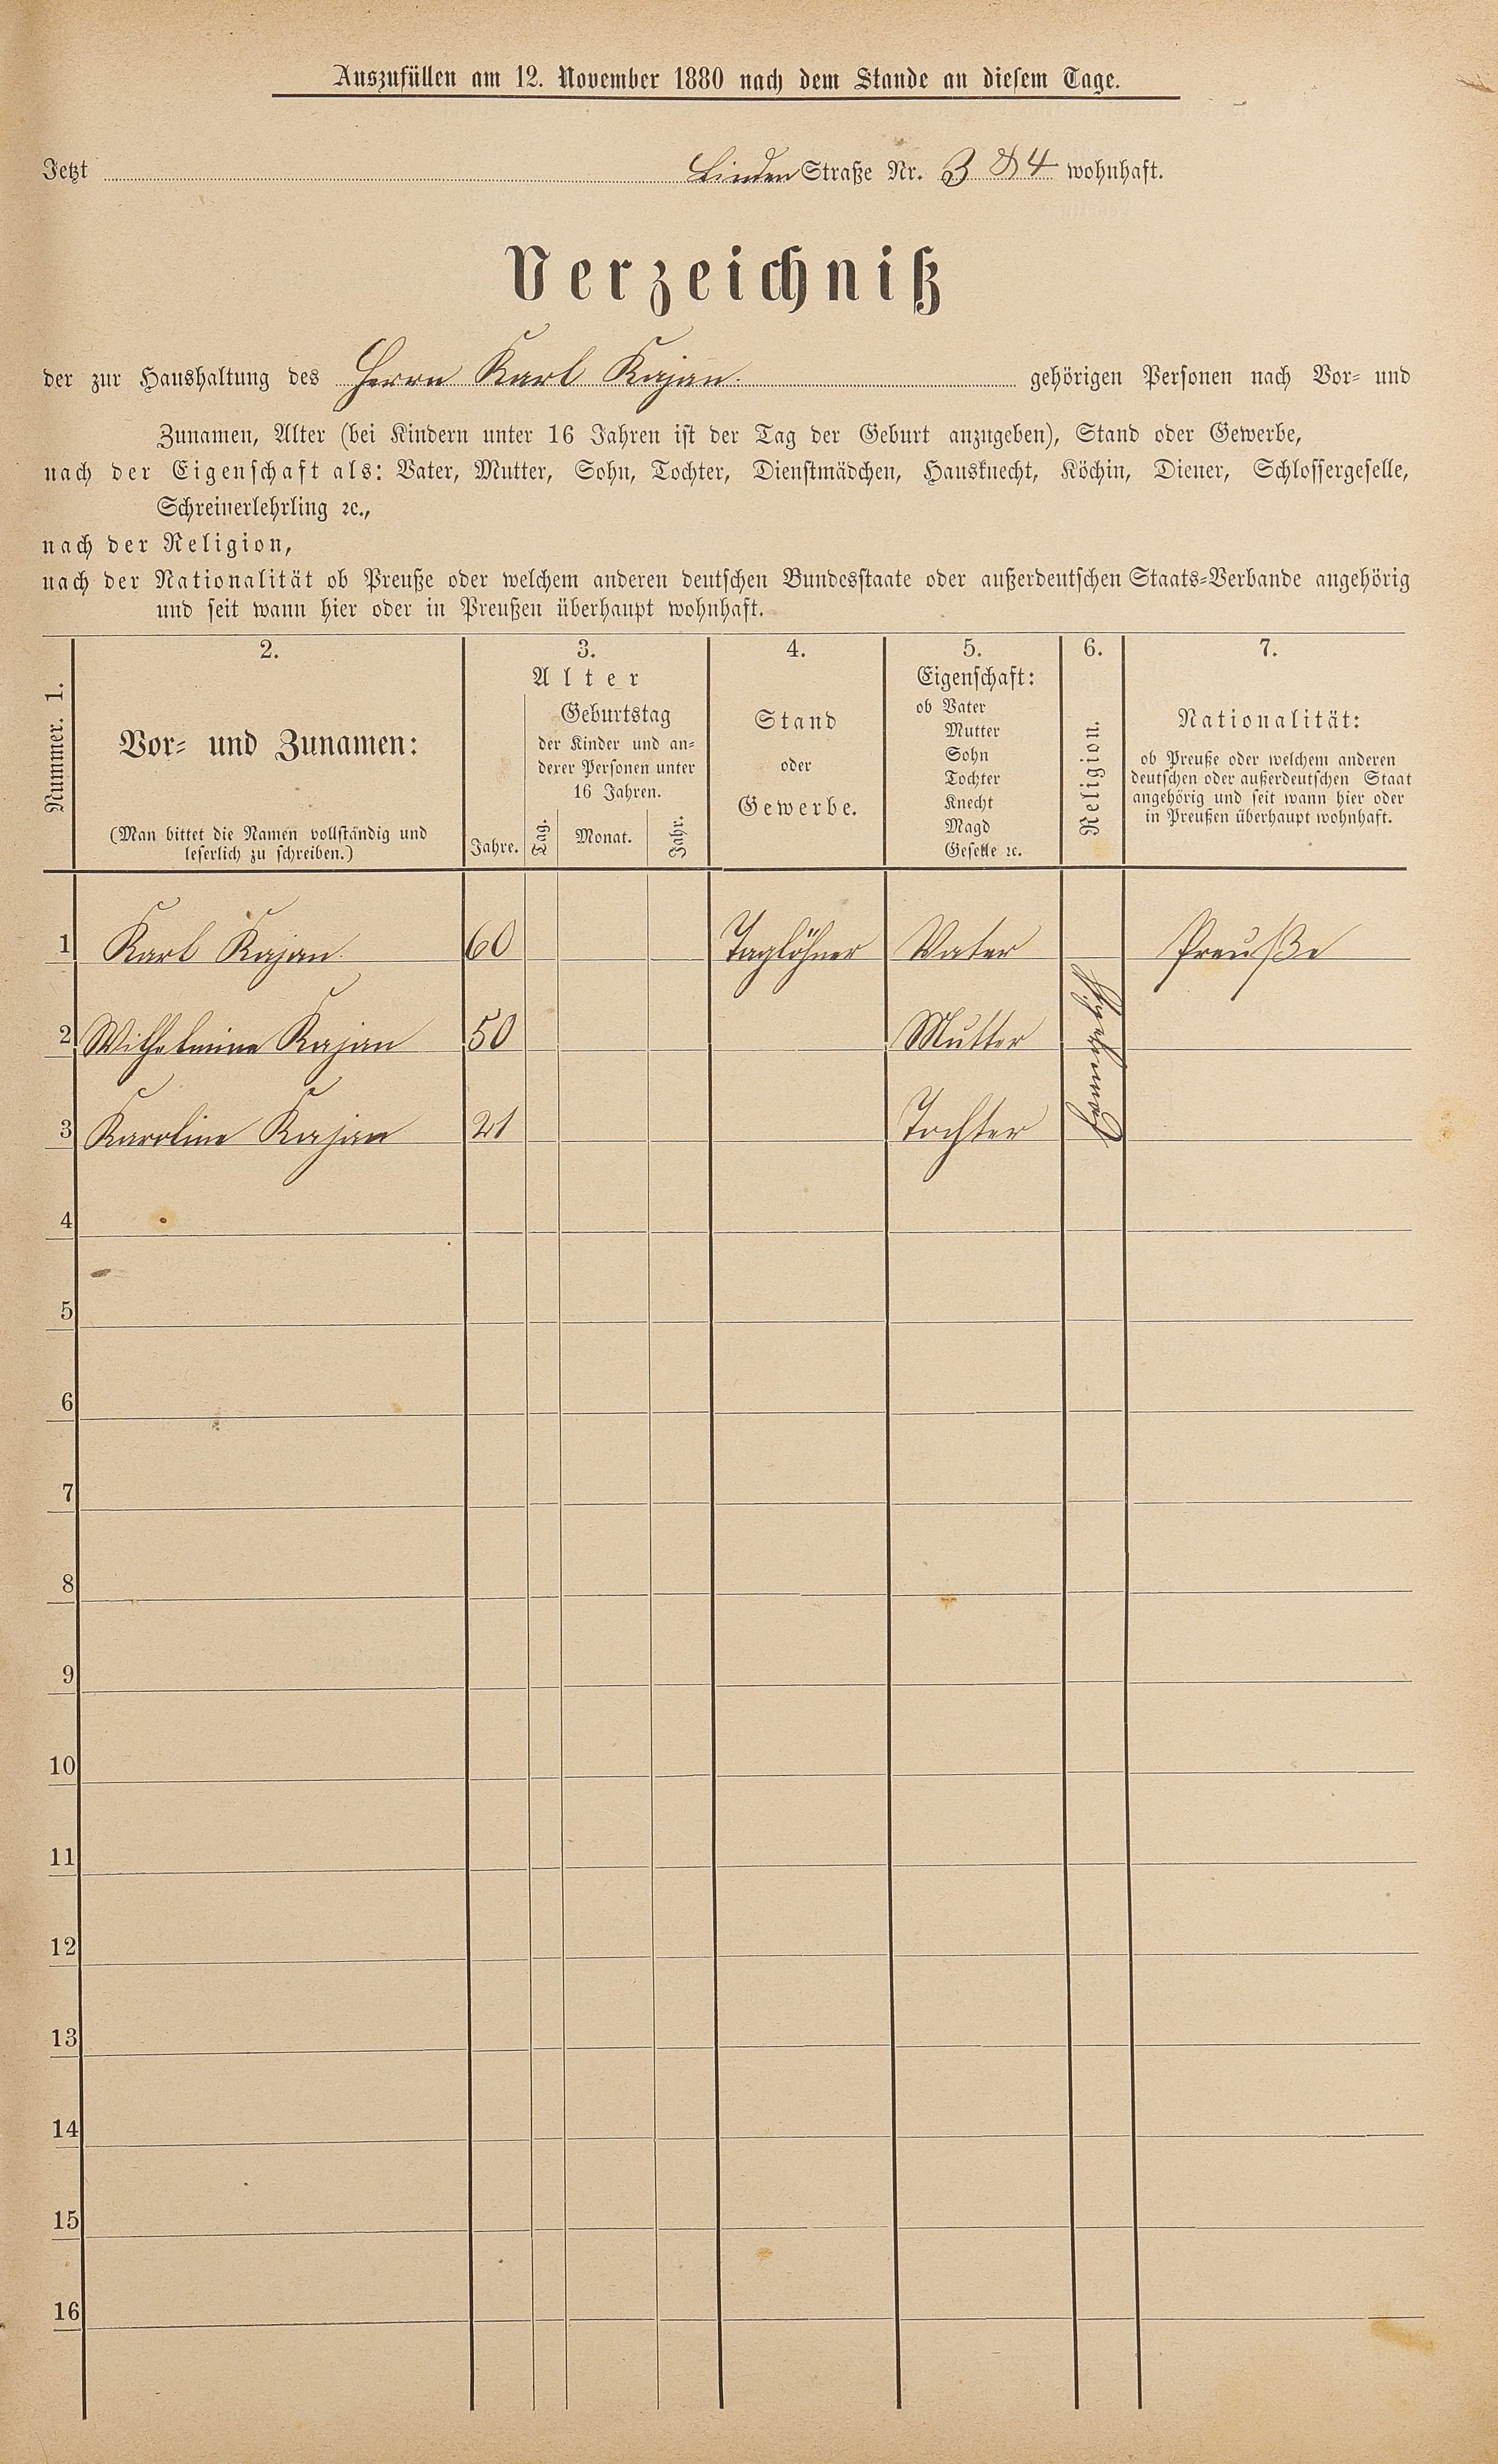 Auszufüllen am 12. November 1880 nach dem Stande an diesem Tage.
Jetzt Linden Straße Nr. 3 & 4 wohnhaft.
Verzeichniß
der zur Haushaltung des Herrn Karl Kajan. gehörigen Personen nach Vor- und
Zunamen, Alter (bei Kindern unter 16 Jahren ist der Tag der Geburt anzugeben), Stand oder Gewerbe,
nach der Eigenschaft als: Vater, Mutter, Sohn, Tochter, Dienstmädchen, Hausknecht, Köchin, Diener, Schlossergeselle,
Schreinerlehrling ꝛc.,
nach der Religion,
nach der Nationalität ob Preuße oder welchem anderen deutschen Bundesstaate oder außerdeutschen Staats-Verbande angehörig
und seit wann hier oder in Preußen überhaupt wohnhaft.
Nummer. 1.
2.
Vor- und Zunamen:
(Man bittet die Namen vollständig und
leserlich zu schreiben.)
3.
Alter
Jahre.
Geburtstag
der Kinder und an-
derer Personen unter
16 Jahren.
Tag.
Monat.
Jahr.
4.
Stand
oder
Gewerbe.
5.
Eigenschaft:
ob Vater
Mutter
Sohn
Tochter
Knecht
Magd
Geselle ꝛc.
6.
Religion.
7.
Nationalität:
ob Preuße oder welchem anderen
deutschen oder außerdeutschen Staat
angehörig und seit wann hier oder
in Preußen überhaupt wohnhaft.
1 Karl Kajan. 60 Taglöhner Vater Preuße
2 Wilhelmine Kajan 50 Mutter
3 Karoline Kajan 21 Tochter
4
5
6
7
8
9
10
11
12
13
14
15
16